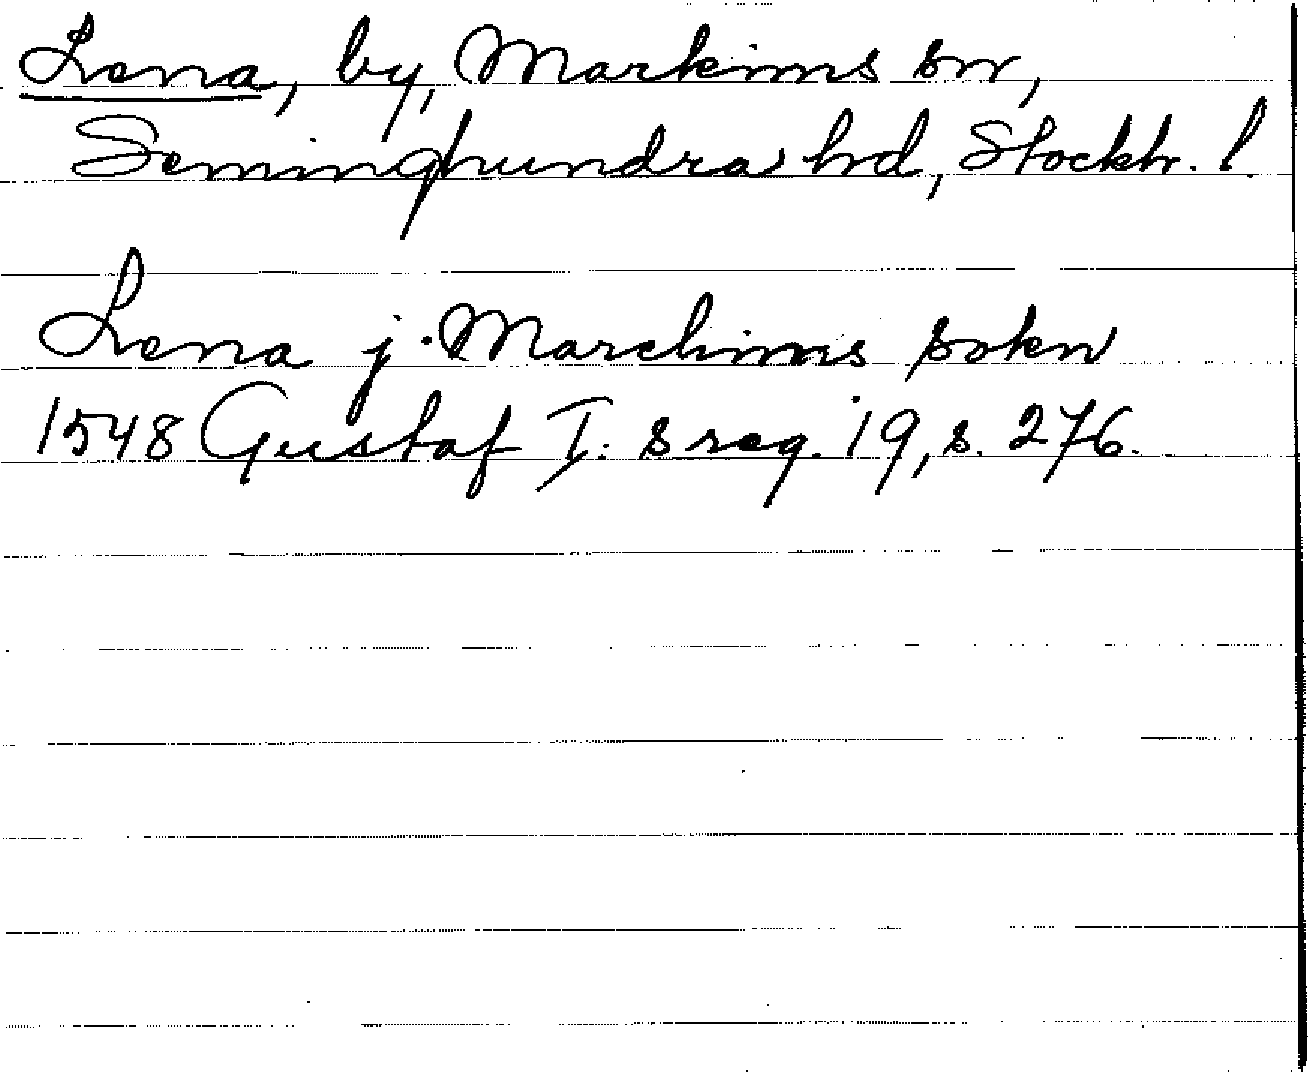 Lena, by, Markims sn,
Seminghundra hd, Stockh. l.
Lena j. Marchims sokn
1548 Gustaf I: s reg. 19, s. 276.